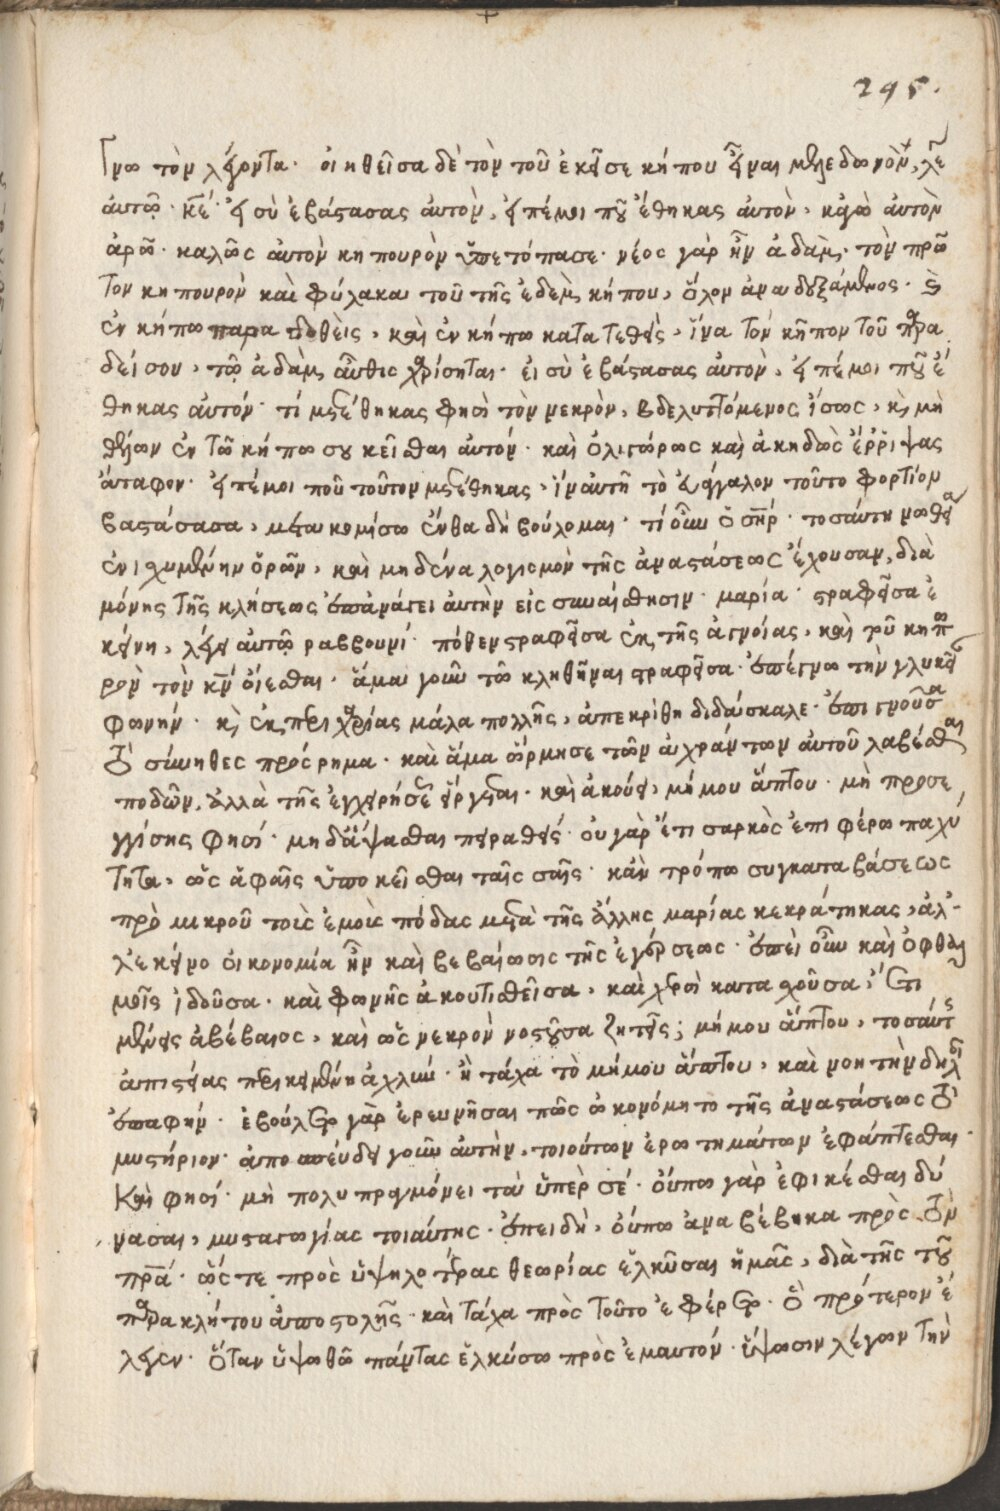 295.
γνω τὸν λέγοντα· οἰηθεῖσα δὲ τὸν τοῦ ἐκεῖσε κήπου εἶναι μελεδωνὸν, λε
ἀυτῶ· κε̅· εἰ σὺ ἐβάστασας ἀυτὸν, εἰπέ μοι ποῦ ἔθηκας ἀυτὸν, κἀγὼ ἀυτὸν
ἀρῶ· καλῶς ἀυτὸν κηπουρὸν ὑπετόπασε· νέος γὰρ ἦν ἀδὰμ, τὸν πρῶ
τον κηπουρὸν καὶ φύλακα τοῦ τῆς ἐδὲμ κήπου, ὅλον ἀναδυξάμενος· καὶ
ἐν κήπω παραδοθεὶς, καὶ ἐν κήπω κατατεθεὶς, ἵνα τὸν κῆπον τοῦ παρα
δείσου, τῶ ἀδὰμ αὖθις χαρίσηται· ει σὺ ἐβάστασας ἀυτὸν, εἰπέ μοι ποῦ ἔ
θηκας ἀυτόν· τί μετέθηκας φησὶ τὸν νεκρὸν, βδελυττόμενος ἴσως, καὶ μὴ
θέλων ἐν τῶ κήπω σου κεῖσθαι ἀυτόν· καὶ ὀλιγώρως καὶ ἀκηδῶς ἔρριψας
ἄταφον· εἰπέ μοι ποῦ τοῦτον μετέθηκας, ἵν' ἀυτὴ τὸ εὐάγκαλον τοῦτο φορτίον
βαστάσασα, μετακομίσω ἔνθα δὴ βούλομαι· τί οὖν ὁ σηρ· τοσαύτη νωθεία
ἐνισχυμένην ὁρῶν, καὶ μηδένα λογισμὸν τῆς ἀναστάσεως ἔχουσαν, διὰ
μόνης τῆς κλήσεως ἐπανάγει ἀυτὴν εἰς συναίσθησιν· μαρία· στραφεῖσα ἐ
κείνη, λέγει ἀυτῶ ραββουνί· πόθεν στραφεῖσα ἐκ τῆς ἀγνοίας, καὶ τοῦ κηπου
ρὸν τὸν κν̅ οἴεσθαι· ἅμα γοῦν τῶ κληθῆναι στραφεῖσα· ἐπέγνω τὴν γλυκεῖαν
φωνήν· καὶ ἐκ περιχαρίας μάλα πολλῆς, ἀπεκρίθη διδάσκαλε· ἐπιγνοῦσα
τὸ σύνηθες πρόσρημα· καὶ ἅμα ὥρμησε τῶν ἀχράντων ἀυτοῦ λαβέσθαι
ποδῶν, ἀλλὰ τῆς ἐγχειρήσεως εἴργεται· καὶ ἀκούει, μή μου ἅπτου· μὴ προσε
γγίσης φησί· μηδ' ἅψασθαι πειραθείς· οὐ γὰρ ἔτι σαρκὸς ἐπιφέρω παχύ
τητα, ὡς ἁφαῖς ὑποκεῖσθαι ταῖς σαῖς· κἂν τρόπω συγκαταβάσεως
πρὸ μικροῦ τοὺς ἐμοὺς πόδας μετὰ τῆς ἄλλης μαρίας κεκράτηκας, ἀλ-
λ' ἐκεῖνο οἰκονομία ἦν καὶ βεβαίωσις τῆς ἐγέρσεως· ἐπεὶ οὖν καὶ ὀφθαλ
μοῖς ἰδοῦσα· καὶ φωνῆς ἀκουτισθεῖσα, καὶ χερσὶ κατασχοῦσα, ἔτι
μένεις ἀβέβαιος, καὶ ὡς νεκρὸν νοοῦσα ζητεῖς; μή μου ἅπτου, τοσαύτης
ἀπιστίας περικειμένη ἀχλύν· ἢ τάχα τὸ μή μου ἅπτου, καὶ νοητὴν δηλοῖ
ἐπαφήν· ἐβούλετο γὰρ ἐρευνῆσαι πῶς ὠκονόμητο τῆς ἀναστάσεως τὸ
μυστήριον· ἀποπέυδει γοῦν ἀυτὴν, τοιούτων ἐρωτημάτων ἐφάπτεσθαι·
Καὶ φησί· μὴ πολυπραγμόνει τὰ ὑπὲρ σέ· οὔπω γὰρ ἐφικέσθαι δύ
νασαι, μυσταγωγίας τοιάυτης· ἐπειδὴ, οὔπω ἀναβέβηκα πρὸς τὸν
πρ̅α· ὥστε πρὸς ὑψηλοτέρας θεωρίας ἑλκῦσαι ἡμᾶς, διὰ τῆς τοῦ
παρακλήτου ἀποστολῆς· καὶ τάχα πρὸς τοῦτο ἐφέρετο· ὃ πρότερον ἔ
λεγεν· ὅταν ὑψωθῶ πάντας ἑλκύσω πρὸς ἐμαυτόν· ὕψωσιν λέγων τὴν